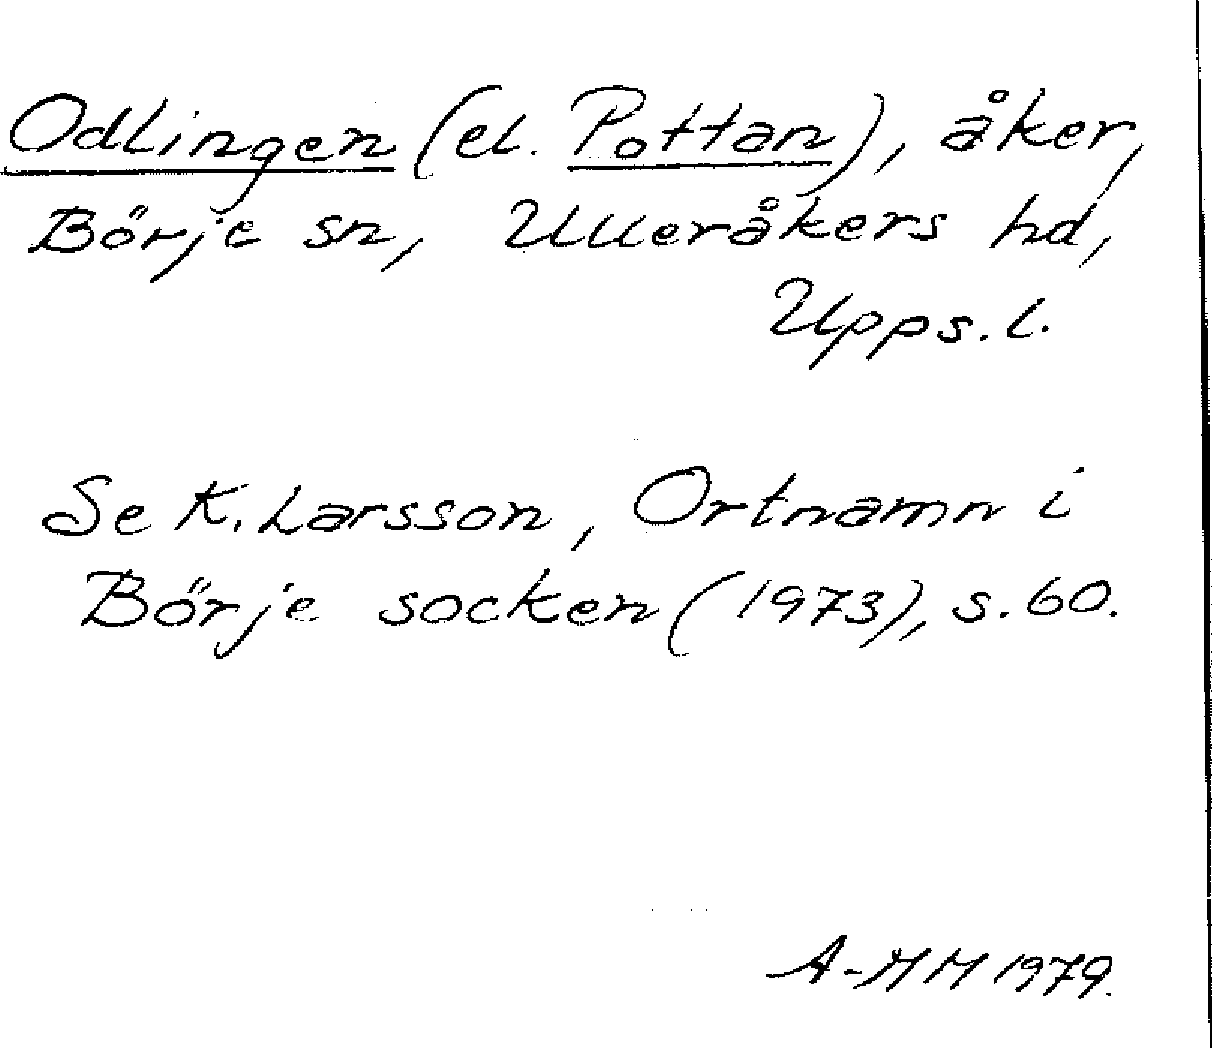 Odlingen (el. Pottan), åker,
Börje sn, Ulleråkers hd,
Upps. l.
Se K. Larsson, Ortnamn i
Börje socken (1973), s. 60.
A-MM 1979.